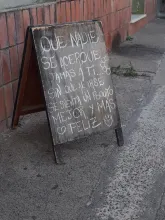 QUE NADIE
SE ACERQUE
JAMAS A TI
SIN QUE AL IRSE
SE SIENTA UN POCO
MEJOR Y MAS
FELIZ